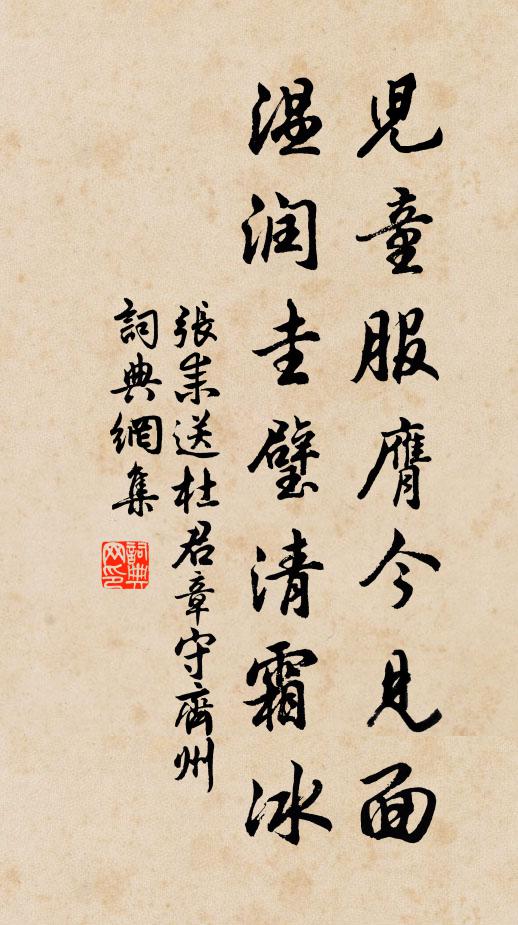 児童服膺今見面
温润圭璧清霜冰
張耒送杜君章守齊州
詞典網集
詞典网印